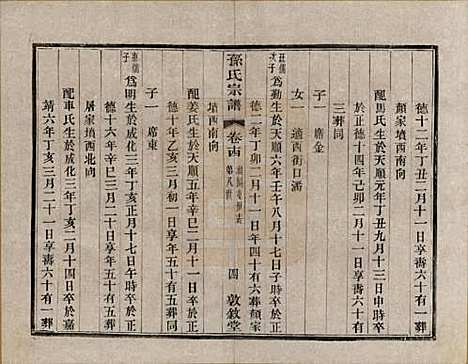 德十二年丁丑二月十一日享壽六十有一葬
顏家墳西南向
配馬氏生於天順元年丁丑九月十三日申時卒
於正德十四年己卯二月十一日享壽六十有
三葬同
子一 席金
女一 適西街口潘
次子 爲勤生於天順六年壬午八月十七日子時卒於正
德二年丁卯二月十一日年四十有六葬顏家
孫氏宗譜 卷十四 第八世 四 敦敘堂
墳西南向
配姜氏生於天順五年辛巳二月十一日卒於正
德十年乙亥三月初一日享年五十有五葬同
子一 席東
子 爲明生於成化三年丁亥正月十七日午時卒於正
德十六年辛巳三月二十二日享年五十有五葬
屠家墳西北向
配車氏生於成化三年丁亥二月十四日卒於嘉
靖六年丁亥三月二十一日享壽六十有一葬